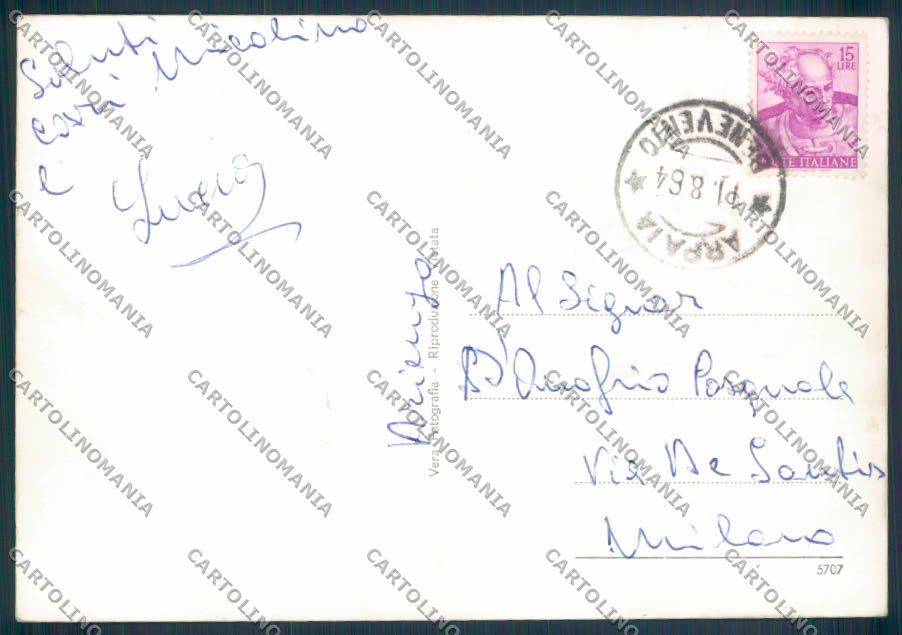 Saluti
cari Nicolino
e
Lucia
Arienzo
Vera Fotografia - Riproduzione Vietata
15
LIRE
POSTE ITALIANE
ARPAIA
BENEVENTO
1.8.64
Al Signor
D'Onofrio Pasquale
Via De Santis
Milano
5707
CARTOLINOMANIA